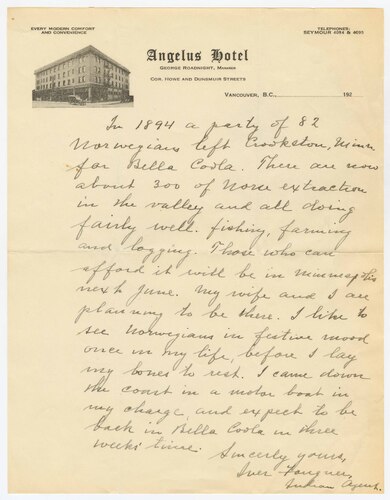 EVERY MODERN COMFORT
AND CONVENIENCE
TELEPHONES:
SEYMOUR 4094 & 4095
Angelus Hotel
GEORGE ROADNIGHT, MANAGER
COR. HOWE AND DUNSMUIR STREETS
VANCOUVER, B.C., 192
In 1894 a party of 82
Norwegians left Crookston, Minn
for Bella Coola. There are now
about 300 of Norse extraction
in the valley and all doing
fairly well. fishing, farming
and logging. Those who can
afford it will be in Minneapolis
next June. My wife and I are
planning to be there. I like to
see Norwegians in festive mood
once in my life, before I lay
my bones to rest. I came down
the coast in a motor boat in
my charge, and expect to be
back in Bella Coola in three
weeks' time.
Sincerely yours,
Iver Fougner,
Indian Agent.